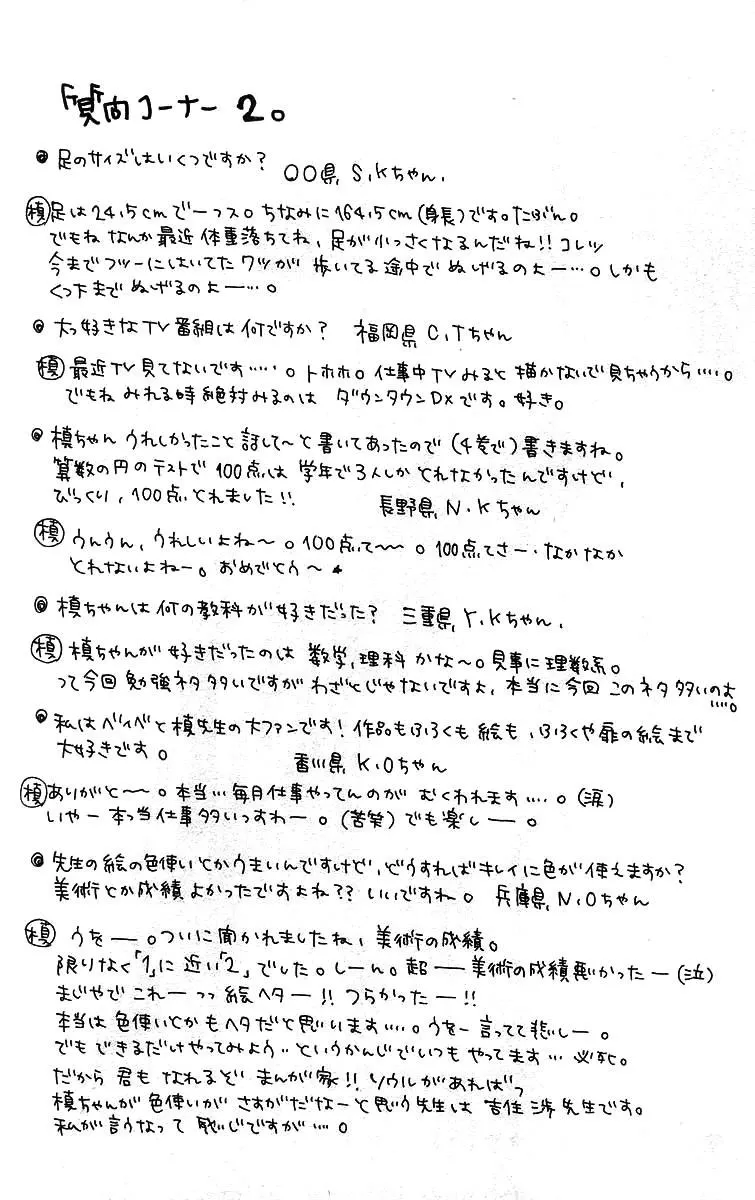 質問コーナー 2。
足のサイズはいくつですか? 〇〇県 S.Kちゃん.
槙 足は24.5cmでーっス。ちなみに164.5cm(身長)です。たぶん。
でもね なんか最近 体重落ちてね、足が小っさくなるんだね!! コレッ
今までフツーにはいてたクツが 歩いてる途中で ぬげるのよー…。しかも
くつ下まで ぬげるのよー…。
大っ好きなTV番組は何ですか? 福岡県 C.Tちゃん
槙 最近TV見てないです……。トホホ。仕事中TVみると 描かないで見ちゃうから……。
でもね みれる時絶対みるのは ダウンタウンDXです。好き。
槙ちゃん うれしかったこと 話して〜と 書いてあったので (4巻で) 書きますね。
算数の円のテストで 100点は 学年で3人しか とれなかったんですけど、
びっくり、100点とれました!! 長野県 N.Kちゃん
槙 うんうん、うれしいよね〜。100点て〜〜。100点てさー・なかなか
とれないよねー。おめでとう〜
槙ちゃんは何の教科が好きだった? 三重県 Y.Kちゃん.
槙 槙ちゃんが好きだったのは 数学、理科 かな〜。見事に理数系。
って今回 勉強ネタ多いですが わざとじゃないですよ、本当に今回 このネタ多いのよ……。
私はベイベと槙先生の大ファンです! 作品もふろくも 絵も、ふろくや扉の絵まで
大好きです。 香川県 K.Oちゃん
槙 ありがと〜〜。本当…毎月仕事やってんのが むくわれます……。(涙)
いやー 本っ当仕事多いっすわー。(苦笑) でも楽しー。
先生の絵の色使いとかうまいんですけど、どうすればキレイに色が使えますか?
美術とか成績よかったですよね?? いいですね。 兵庫県 N.Oちゃん
槙 うをー。ついに聞かれましたね、美術の成績。
限りなく「1」に近い「2」でした。しーん。超ー美術の成績悪かったー(泣)
まじやで これーっっ 絵ヘター!! つらかったー!!
本当は 色使いとかもヘタだと思います……。うをー 言ってて悲しー。
でも できるだけやってみよう‥というかんじでいつも やってます… 必死。
だから 君も なれるぞ まんが家!! ソウルがあればっ
槙ちゃんが色使いが さすがだなーと思う先生は 吉住 渉先生です。
私が言うなって 感じですが……。